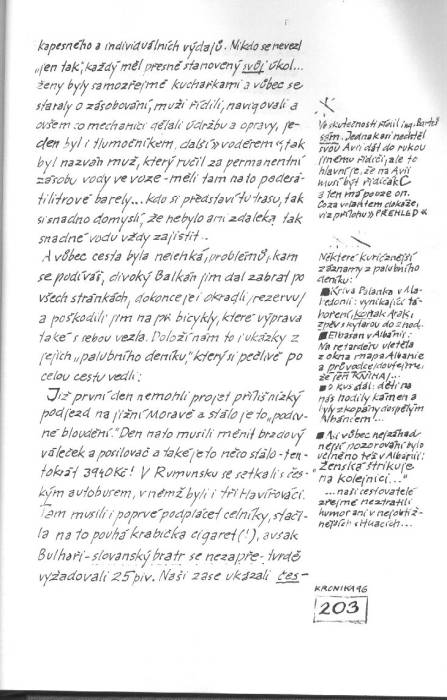 kapesného a individuálních výdajů. Nikdo se nevezl
„jen tak", každý měl přesně stanovený svůj úkol...
ženy byly samozřejmě kuchařkami a vůbec se
staraly o zásobování, muži řídili, navigovali a
ovšem co mechanici dělali údržbu a opravy, je-
den byl i tlumočníkem, další „voděrem", tak
byl nazván muž, který ručil za permanentní
zásobu vody ve voze – měli tam na to pade
litrové barely... kdo si představí tu trasu, tak
si snadno domyslí, že nebylo ani zdaleka tak
snadné vodu vždy zajistit..
A vůbec cesta byla nelehká, problémů, kam
se podíváš, divoký Balkán jim dal zabrat po
všech stránkách, dokonce je i okradli /rezervu/
a poškodili jim na pk bicykly, které výprava
také s sebou vezla. Položí nám to i ukázky z
jejich „palubního deníku", který si pečlivě po
celou cestu vedli:
Již první den nemohli projet příliš nízký
podjezd na jižní Moravě a stálo je to „podiv-
né bloudění." Den nato musili měnit brzdový
váleček a posilovač a také je to něco stálo - ten-
tokrát 3940 Kč! V Rumunsku se setkali s čes-
kým autobusem, v němž byli i tři Havířováci.
Tam musili i poprvé podplácet celníky, stači-
la na to pouhá krabička cigaret (!), avšak
Bulhaři - slovanský bratr se nezapře - tvrdě
vyžadovali 25 piv. Naši zase ukázali čes-
Ve skutečnosti řídil ing. Bartoš
sám. Jednak asi nechtěl
svou Avii dát do rukou
jinému řidiči, ale to
hlavní je, že na Avii
musí být řidičák C
a ten má pouze on.
Co za volantem dokáže,
viz přílohu » PŘEHLED «
Některé kurióznější
záznamy z palubního
deníku:
■ Kriva Palanka v Ma-
kedonii: vynikající tá-
boření, koňak Arak,
zpěv s kytarou do z nod.
■ Elbasan v Albánii:
Na retardéru uletěla
z okna mapa Albánie
a průvodce, doufejme,
že jen KNIHA!...
■ o kus dál: děti na
nás hodily kámen a
byly zkopány dospělým
Albáncem!...
■ A vůbec nejzáhad-
nější pozorování bylo
učiněno též v Albánii:
„Ženská štrikuje
na kolejnici..."
...naši cestovatelé
zřejmě neztratili
humor ani v nejobtíž-
nějších situacích...
KRONIKA 96
203